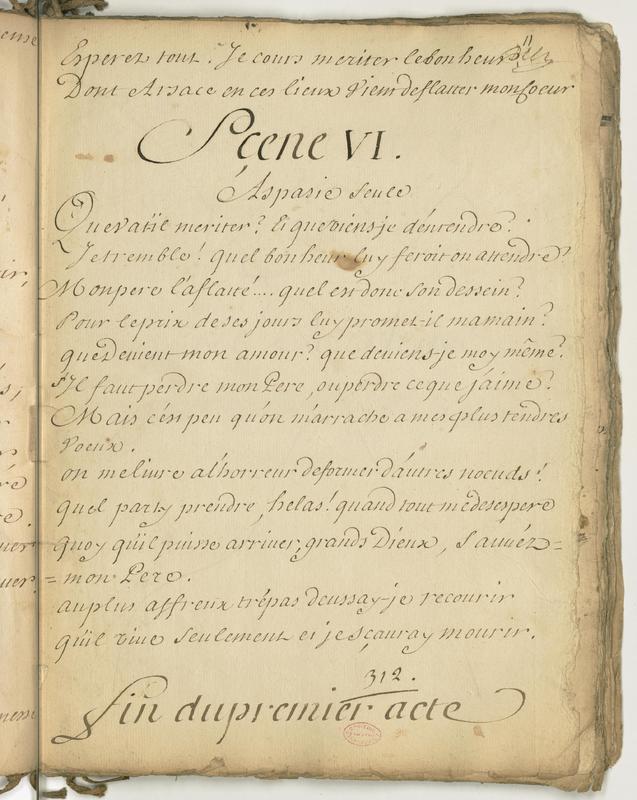 Esperez tout. Je cours meriter le bonheur
Dont Arsace en ces lieux vient de flatter mon Coeur
Sçene VI.
Aspasie Seule
Que va t'il meriter? Et que viens-je d'entendre?
Je tremble! quel bonheur luy feroit on attendre?
Mon pere l'a flatté.... quel est donc Son dessein?
Pour le prix de ses jours luy promet-il ma main?
que devient mon amour? que deviens-je moy même?
S'Il faut perdre mon Pere, ou perdre ce que j'aime?
Mais c'est peu qu'on m'arrache a mes plus tendres
voeux.
on me livre a l'horreur de former d'autres noeuds!
quel party prendre, helas! quand tout me desespere
quoy qu'il puisse arriver, grands Dieux, Sauvéz=
=mon Pere.
au plus affreux trépas deussay-je recourir
qu'il vive Seulement et je Sçauray mourir.
312.
fin du premier acte